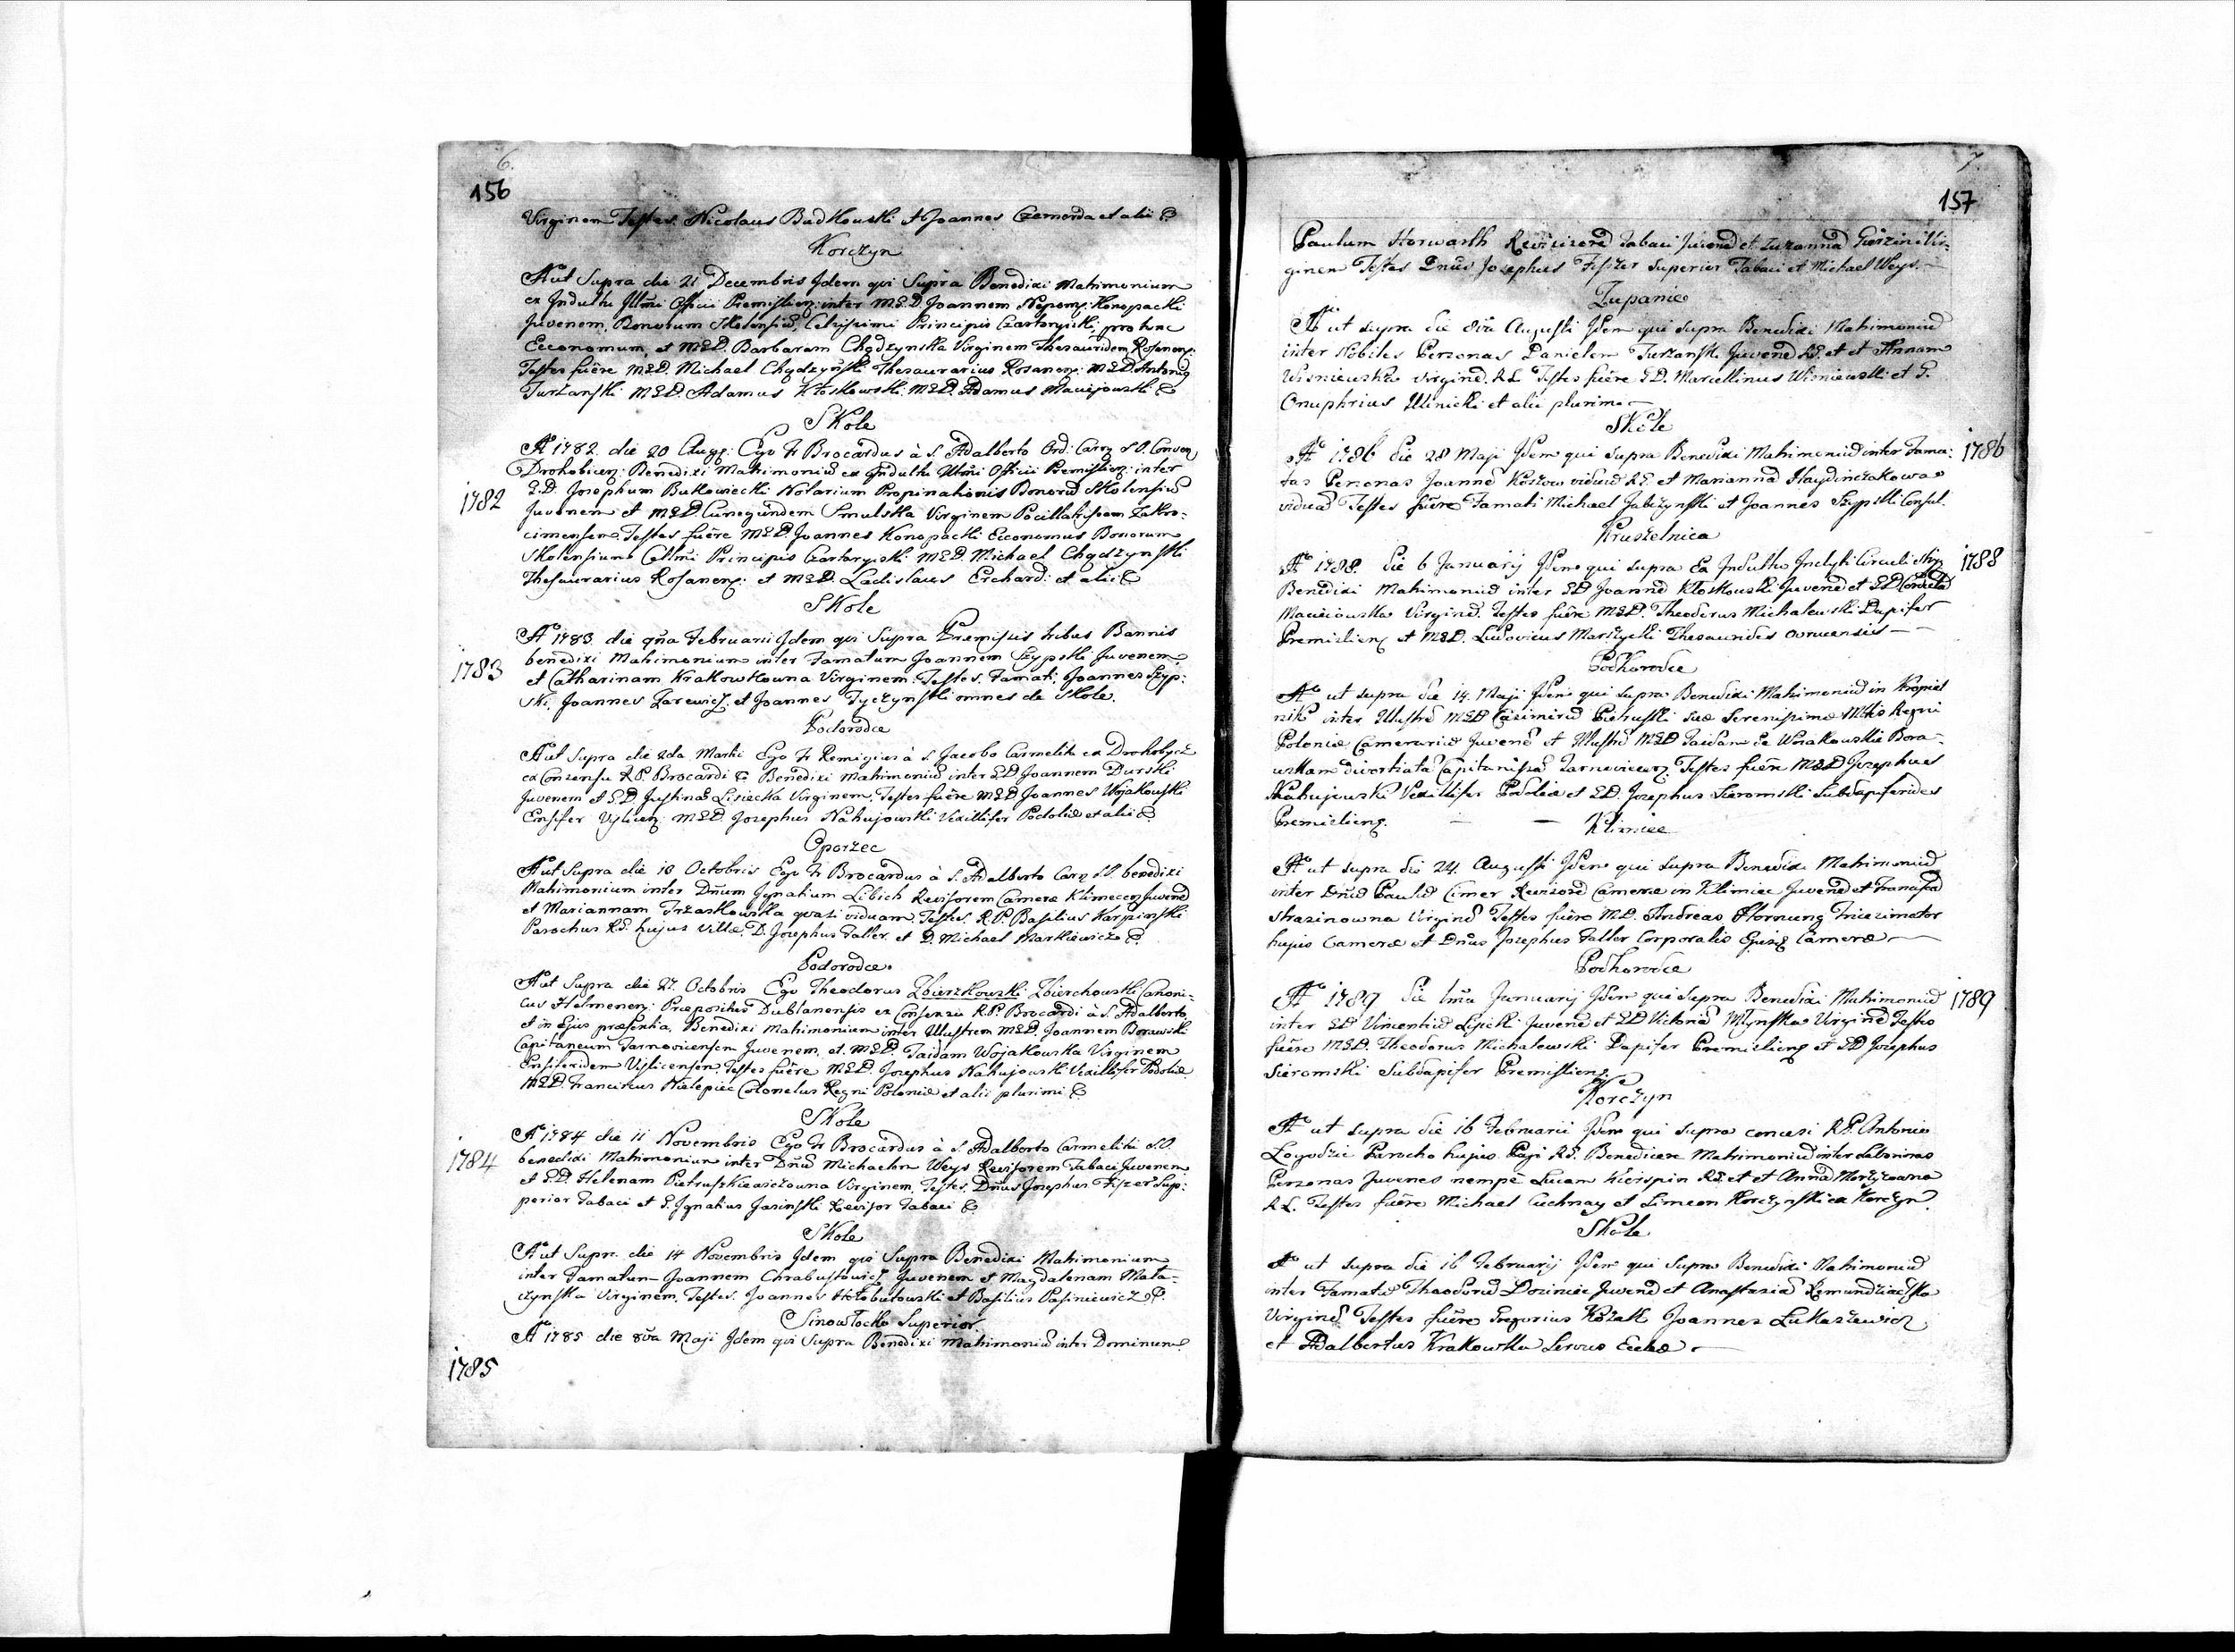 6.
156
Virginem Testes. Nicolaus Budkowski et Joannes Czemerda et alii &
Korczyn
Aº ut Supra die 21 Decembris Idem qui Supra Benedixi Matrimonium
ex Indultu Illmi Officii Premislien: inter M.G.D. Joannem Nepom: Konopacki
Juvenem, Bonorum Skolensiũ, Celsissimi Principis Czartoryski, pro tunc
Œconomum, et M.G.D. Barbaram Chądzynska Virginem Thesauridem Rosanen:
Testes fuêre M.G.D. Michael Chądzyński Thesaurarius Rosanen: M.G.D. Antonig
Turzanski M.G.D. Adamus Kłoskowski. M.G.D. Adamus Maciejowski &
Skole
Aº 1782 die 20 Augg: Ego Fr Brocardus à S. Adalberto Ord: Carm: S.O. Conven
Drohobicen: Benedixi Matrimoniũ ex Indultu Illmi Officii Premislien: inter
1782 G.D. Josephum Butkowiecki Notarium Propinationis Bonorũ Skolensiũ
Juvenem et M.G.D. Cunegundem Smulska Virginem Pocillatrissam Zakro=
cimensem. Testes fuêre M.G.D. Joannes Konopacki Œconomus Bonorum
Skolensium Celsmi Principis Czartoryski M.G.D. Michael Chądzynski
Thesaurarius Rosanen: et M.G.D. Ladislaus Erchard: et alii &
Skole
Aº 1783 die 9na Februarii Idem qui Supra Præmissis tribus Bannis
benedixi Matrimonium inter Famatum Joannem Szypski Juvenem,
1783 et Catharinam Krakowkowna Virginem. Testes. Famati, Joannes Szyp=
ski, Joannes Zarewicz, et Joannes Tyczynski omnes de Skole.
Podorodce
Aº ut Supra die 2da Martii Ego Fr Remigius à S. Jacobo Carmelita ex Drohobycz
ex Consensu R.P. Brocardi & Benedixi Matrimoniũ inter G.D. Joannem Durski
Juvenem et G.D. Justinaẽ Lisiecka Virginem. Testes fuêre M.G.D. Joannes Wojakowski
Ensifer Vislicen: M.G.D. Josephus Nahujowski Vexillifer Podoliæ et alii &
Oporzec
Aº ut Supra die 18 Octobris Ego Fr Brocardus à S. Adalberto Carm S.O. benedixi
Matrimonium inter Dñum Ignatium Libich Revisorem Cameræ Klimecen Juvenẽ
et Mariannam Trzaskowska quasi viduam. Testes. R.P. Basilius Karpinski
Parochus R.G. hujus Villæ. D. Josephus Faller. et D. Michael Markiewicz &
Podorodce.
Aº ut Supra die 27. Octobris Ego Theodorus Zbierzkowski Zbierchowski Canoni=
cus Helmenen: Præpositus Dublanensis ex Consensu R.P. Brocardi à S. Adalberto,
et in Ejus præsentia, Benedixi Matrimonium inter Illustrem M.G.D. Joannem Borawski
Capitaneum Tarnovicensem Juvenem, et M.G.D. Taidam Wojakowska Virginem
Ensiferidem Vislicensem. Testes fuêre M.G.D. Josephus Nahujowski Vexillifer Podoliæ.
M.G.D. Franciscus Nalepiec Colonelus Regni Poloniæ et alii plurimi &
Skole
Aº 1784 die 11 Novembris Ego Fr Brocardus à S. Adalberto Carmelita S.O.
1784 benedixi Matrimonium inter Dñũ Michaelem Weys Revisorem Tabaci Juvenem
et G.D. Helenam Pietruszkiewiczowna Virginem, Testes. Dñus Josephus Fiszer Sup:
perior Tabaci et G. Ignatius Jasinski Revisor Tabaci &
Skole
Aº ut Supra die 14 Novembris Idem qui Supra Benedixi Matrimonium
inter Famatum Joannem Chrabustowicz Juvenem et Magdalenam Mała=
czynska Virginem. Testes. Joannes Hołobutowski et Basilius Pasiniewicz &
Sinowłocko Superior
Aº 1785 die 8va Maji Idem qui Supra Benedixi Matrimoniũ inter Dominum
1785
7
157
Paulum Horwarth Revisorẽ Tabaci Juvenẽ et Zuzannã Gürzin Vir=
ginem Testes Dnũs Josephus Fiszer Superior Tabaci et Michael Weys.
Zupanie
Aº ut supra die 8va Augusti Idem qui supra Benedixi Matrimoniũ
inter Nobiles Personas Danielem Turzanski Juvenẽ R.G. et et Annam
Wisniewska virginẽ. R.L Testes fuêre G.D. Marcellinus Wisniewski et G.
Onuphrius Ilinicki et alii plurimi
Skole
Aº 1786 die 28 Maji Idem qui supra Benedixi Matrimoniũ inter Fama= 1786
tas Personas Joannẽ Koszow viduũ R.G. et Mariannã Haydinczakowa
viduã Testes fuêre Famati Michael Jabczynski et Joannes Szypski Consul.
Kruszelnica
Aº 1788. die 6 Januarij Idem qui supra Ex Indultu Inclyti Circuli Stryj 1788
Benedixi Matrimoniũ inter G.D Joannẽ Kłoskowski Juvenẽ et G.D
Maciejowska Virginẽ. Testes fuêre M.G.D. Theodorus Michalewski Dapifer
Premislien et M.G.D. Ludovicus Marszycki Thesaurides Owruensis
Podhorodce
Aº ut supra die 14. Maji Idem qui supra Benedixi Matrimoniũ in Kropiw
nik inter Illustrẽ M.G.D Casimirũ Pietruski Suæ Serenissimæ Mttis Regni
Poloniæ Camerariũ Juvenẽ et Illustrẽ M.G.D Taidam de Wojakowskie Bora=
wskam divortiatã Capitanissã Tarnovicen. Testes fuêre M.G.D Josephus
Nahujowski Vexillifer Podoliæ et G.D. Josephus Sieromski Subdapiferides
Premislien.
Klimiec
Aº ut supra die 24. Augusti Idem qui supra Benedixi Matrimoniũ
inter Dnũ Paulũ Cimer Revisorẽ Cameræ in Klimiec Juvenẽ et Franciscã
Strazinowna Virginẽ Testes fuêre M.D. Andreas Hornung Tricezimator
hujus Cameræ et Dnũs Josephus Faller Corporalis Ejusd Cameræ
Podhorodce
Aº 1789 die 1ma Januarij Idem qui supra Benedixi Matrimoniũ 1789
inter G.D Vincentiũ Lisicki Juvenẽ et G.D Victoriã Młynska Virginẽ Testes
fuêre M.G.D. Theodorus Michalewski Dapifer Premislien et G.D Josephus
Sieromski Subdapifer Premislien.
Korczyn
Aº ut supra die 16 Februarii Idem qui supra concessi R.P. Antonio
Łogodzic Parocho hujus Pagi R.G. Benedicere Matrimoniũ inter Laboriosas
Personas Juvenes nempè Lucam Kierspin R.G. et et Annã Morzycowna
R.L. Testes fuêre Michael Cuchnay et Simeon Korczynski ex Korczyn.
Skole
Aº ut supra die 16 Februarij Idem qui supra Benedixi Matrimoniũ
inter Famatũ Theodorũ Doziniec Juvenẽ et Anastasiã Remundziacska
Virginẽ Testes fuêre Gregorius Kozak Joannes Łukaszewicz
et Adalbertus Krakowka Servus Eccłæ